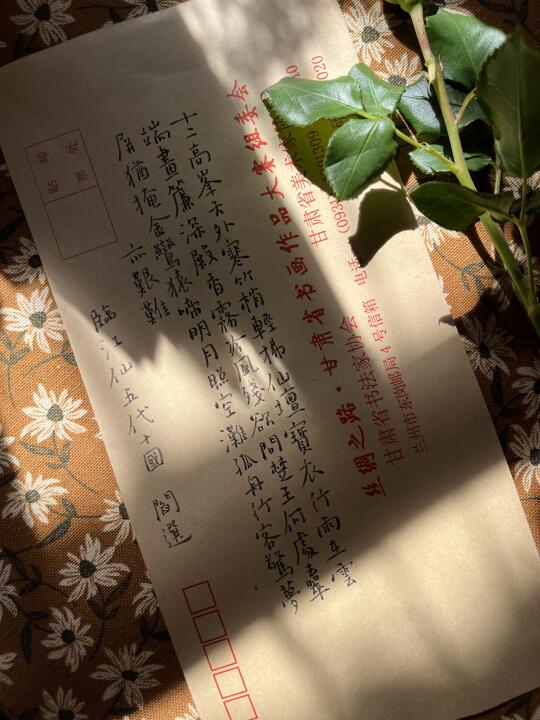 十二高峯天外寒竹梢輕拂仙壇寶衣行雨在雲
端畫簾深殿香霧冷風殘欲問楚王何處去翠
屏猶掩金鸞猿啼明月照空灘孤舟行客驚夢
亦艱難
臨江仙五代十國 閻選
丝绸之路·甘肃省书画作品大赛组委会
甘肃省书法家协会 甘肃省美术家
兰州市东岗邮局4号信箱 电话
贴邮
票处